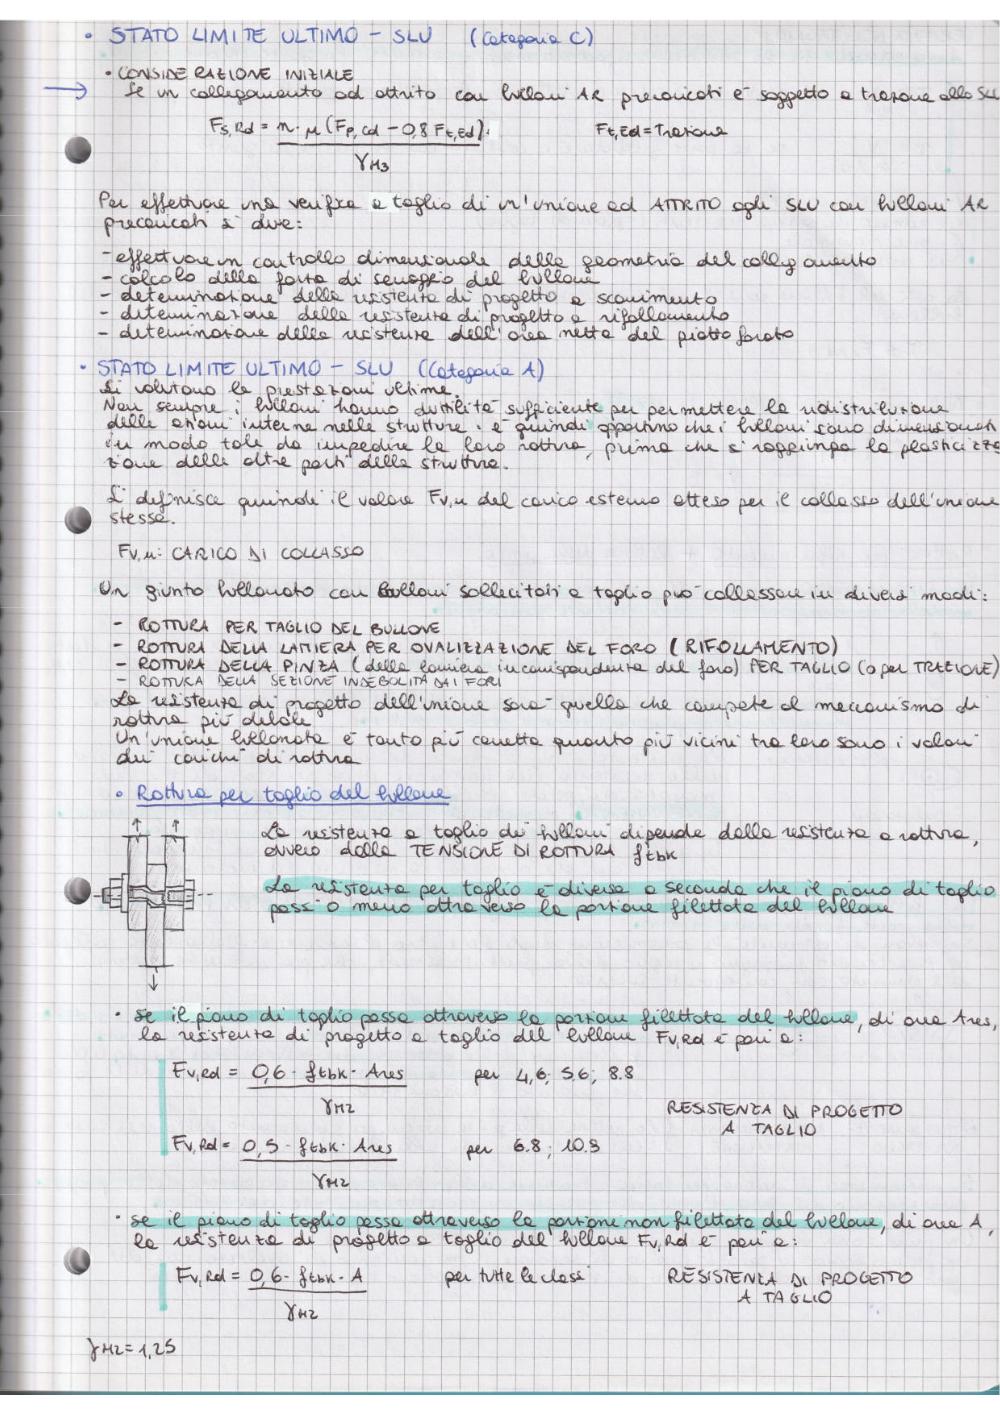 • STATO LIMITE ULTIMO - SLU (Categoria C)
• CONSIDERAZIONE INIZIALE
→ Se un collegamento ad attrito con bulloni AR precaricati è soggetto a trazione allo SLU
Fs,Rd = n · μ (Fp,Cd - 0,8 Ft,Ed) Ft,Ed = Trazione
γM3
Per effettuare una verifica a taglio di un'unione ad ATTRITO agli SLU con bulloni AR
precaricati si deve:
- effettuare un controllo dimensionale della geometria del collegamento
- calcolo della forza di serraggio del bullone
- determinazione della resistenza di progetto a scorrimento
- determinazione della resistenza di progetto a rifollamento
- determinazione della resistenza dell'area netta del piatto forato
• STATO LIMITE ULTIMO - SLU (Categoria A)
Si valutano le prestazioni ultime.
Non sempre i bulloni hanno duttilità sufficiente per permettere la redistribuzione
delle azioni interne nelle strutture. È quindi opportuno che i bulloni siano dimensionati
in modo tale da impedire la loro rottura, prima che si raggiunga la plasticizza
zione delle altre parti della struttura.
Si definisce quindi il valore Fv,u del carico esterno atteso per il collasso dell'unione
stessa.
Fv,u: CARICO DI COLLASSO
Un giunto bullonato con bulloni sollecitati a taglio può collassare in diversi modi:
- ROTTURA PER TAGLIO DEL BULLONE
- ROTTURA DELLA LAMIERA PER OVALIZZAZIONE DEL FORO (RIFOLLAMENTO)
- ROTTURA DELLA PINZA (della lamiera in corrispondenza del foro) PER TAGLIO (o per TRAZIONE)
- ROTTURA DELLA SEZIONE INDEBOLITA DAI FORI
La resistenza di progetto dell'unione sarà quella che compete al meccanismo di
rottura più debole
Un'unione bullonata è tanto più corretta quanto più vicini tra loro sono i valori
dei carichi di rottura
• Rottura per taglio del bullone
La resistenza a taglio dei bulloni dipende dalla resistenza a rottura,
ovvero dalla TENSIONE DI ROTTURA ftbk
La resistenza per taglio è diversa a seconda che il piano di taglio
passi o meno attraverso la porzione filettata del bullone
• se il piano di taglio passa attraverso la porzione filettata del bullone, di area Ares,
la resistenza di progetto a taglio del bullone Fv,Rd è pari a:
Fv,Rd = 0,6 · ftbk · Ares per 4,6; 5.6; 8.8
γM2
RESISTENZA DI PROGETTO
A TAGLIO
Fv,Rd = 0,5 · ftbk · Ares per 6.8; 10.9
γM2
• se il piano di taglio passa attraverso la porzione non filettata del bullone, di area A,
la resistenza di progetto a taglio del bullone Fv,Rd è pari a:
Fv,Rd = 0,6 · ftbk · A per tutte le classi RESISTENZA DI PROGETTO
γM2 A TAGLIO
γM2 = 1,25